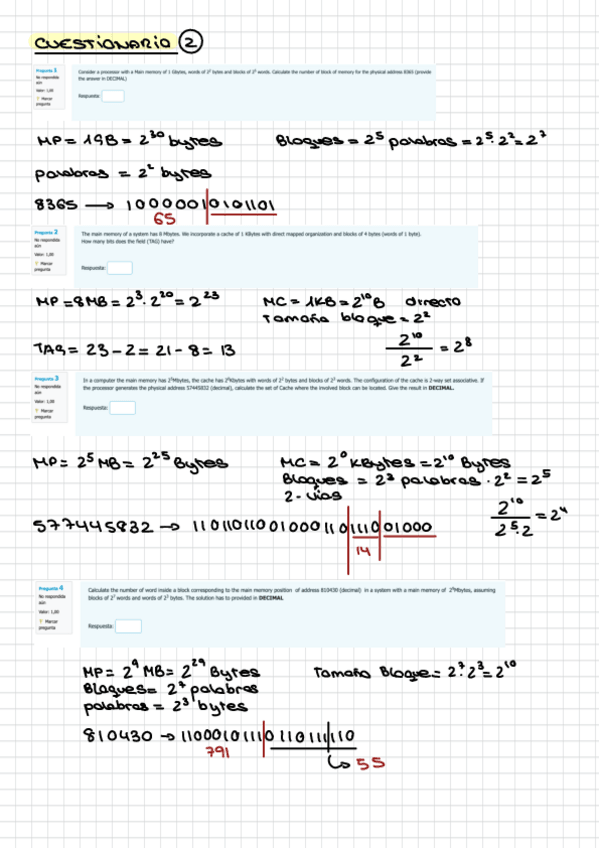 CUESTIONARIO 2
Pregunta 1
No respondida aún
Valor: 1,00
Marcar pregunta
Consider a processor with a Main memory of 1 Gbytes, words of 2² bytes and blocks of 2⁵ words. Calculate the number of block of memory for the physical address 8365 (provide
the answer in DECIMAL)
Respuesta:
MP = 1GB = 2³⁰ bytes
Bloques = 2⁵ palabras = 2⁵·2² = 2⁷
palabras = 2² bytes
8365 → 1000001|0101101
65
Pregunta 2
No respondida aún
Valor: 1,00
Marcar pregunta
The main memory of a system has 8 Mbytes. We incorporate a cache of 1 KBytes with direct mapped organization and blocks of 4 byte (words of 1 byte).
How many bits does the field (TAG) have?
Respuesta:
MP = 8MB = 2³·2²⁰ = 2²³
MC = 1KB = 2¹⁰B directo
Tamaño bloque = 2²
TAG = 23 - 2 = 21 - 8 = 13
2¹⁰/2² = 2⁸
Pregunta 3
No respondida aún
Valor: 1,00
Marcar pregunta
In a computer the main memory has 2⁵Mbytes, the cache has 2⁰Kbytes with words of 2² bytes and blocks of 2³ words. The configuration of the cache is 2-way set associative. If
the processor generates the physical address 57445832 (decimal), calculate the set of Cache where the involved block can be located. Give the result in DECIMAL.
Respuesta:
MP = 2⁵ MB = 2²⁵ Bytes
MC = 2⁰ KBytes = 2¹⁰ Bytes
Bloques = 2³ palabras · 2² = 2⁵
2-vías
2¹⁰/2⁵·2 = 2⁴
577445832 → 11011011001000110|1110|01000
14
Pregunta 4
No respondida aún
Valor: 1,00
Marcar pregunta
Calculate the number of word inside a block corresponding to the main memory position of address 810430 (decimal) in a system with a main memory of 2⁹Mbytes, assuming
blocks of 2⁷ words and words of 2³ bytes. The solution has to provided in DECIMAL
Respuesta:
MP = 2⁹ MB = 2²⁹ Bytes
Tamaño Bloque = 2⁷·2³ = 2¹⁰
Bloques = 2⁷ palabras
palabras = 2³ bytes
810430 → 1100010111|0110111|110
791
↳ 55